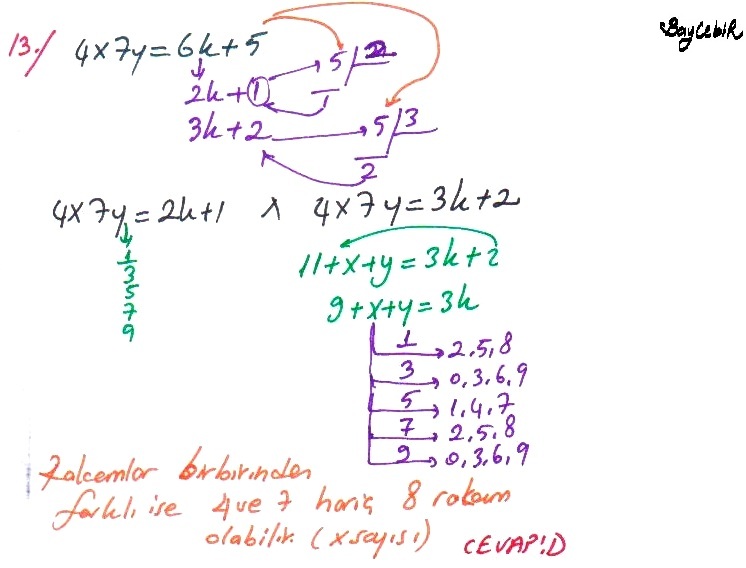 BayCebiR
13./ 4x7y=6k+5
2k+1 5 2 1
3k+2 5 3 2
4x7y=2k+1 ∧ 4x7y=3k+2
1
3
5
7
9
11+x+y=3k+2
9+x+y=3k
1 → 2,5,8
3 → 0,3,6,9
5 → 1,4,7
7 → 2,5,8
9 → 0,3,6,9
Rakamlar birbirinden
farklı ise 4 ve 7 hariç 8 rakam
olabilir (x sayısı) CEVAP:D